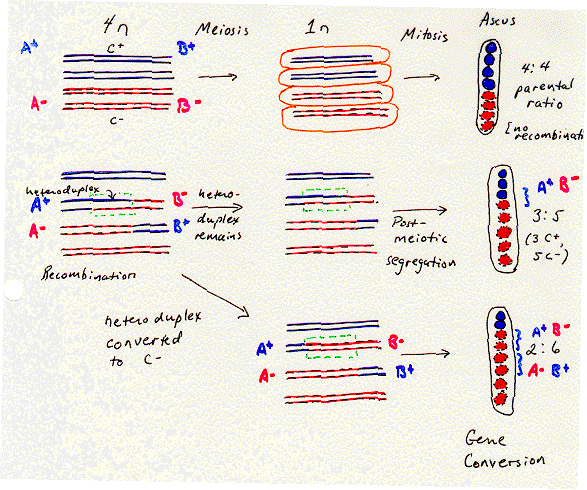 4n Meiosis 1n Mitosis Ascus
A+ C+ B+
A- C- B-
4:4
parental
ratio
[no recombinati
heteroduplex
A+ B-
A- B+
Recombination
hetero-
duplex
remains
Post-
meiotic
segregation
A+ B-
3:5
(3 C+,
5 C-)
heteroduplex
converted
to C-
A+ B-
A- B+
A+ B-
2:6
A- B+
Gene
Conversion